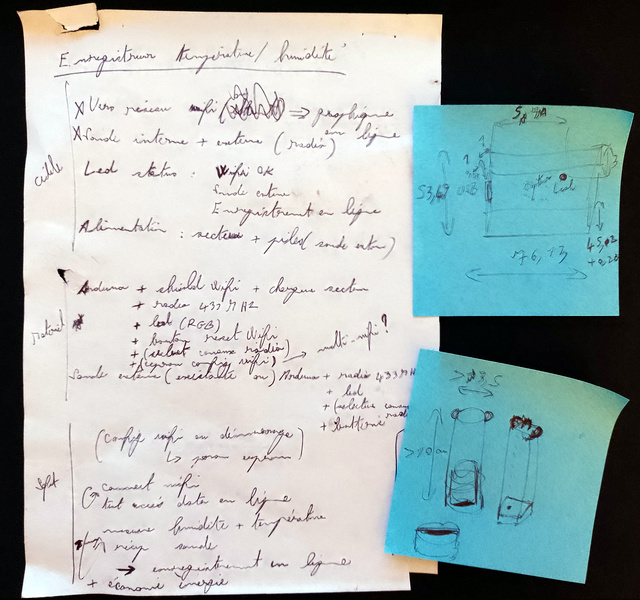 Enregistreur température / humidité
Vers réseau wifi => graphique
en ligne
Sonde interne + externe (radio)
Led status : Wifi OK
Sonde externe
Enregistrement en ligne
Alimentation : secteur + piles (sonde extern)
cible
Arduino + shield Wifi + chargeur secteur
+ radio 433 MHZ
+ led (RGB)
+ bouton reset Wifi
+ (select canaux radio)
+ (écran config wifi) → multi-wifi ?
matériel
Sonde externe (existante ou) Arduino + radio 433 MH
+ led
+ (selection canaux
+ batterie
(Config wifi au démarrage
connect wifi
test accès data en ligne
mesure humidité + température
récup sonde
→ enregistrement en ligne
+ économie énergie
53,
Led
76,
45,
> 3,5
> 10 cm